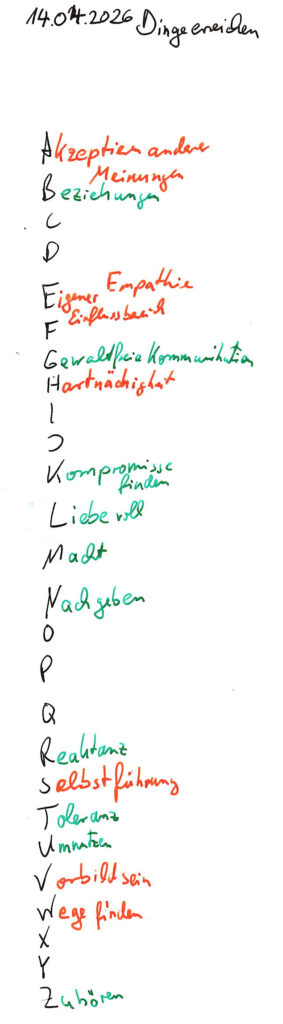 14.04.2026 Dinge erreichen
Akzeptieren anderer
Meinungen
Beziehungen
C
D
Empathie
Eigener
Einflussbereich
F
Gewaltfreie Kommunikation
Hartnäckigkeit
I
J
Kompromisse
finden
Liebevoll
Macht
Nachgeben
O
P
Q
Reaktanz
Selbstführung
Toleranz
Umnutzen
Vorbild sein
Wege finden
X
Y
Zuhören